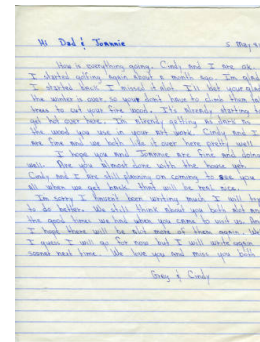 Hi Dad & Jonnnie 5 May
How is everything going. Cindy and I are ok.
I started golfing again about a month ago. I'm glad
I started back I missed it alot. I'll bet your glad
the winter is over so you don't have to climb them tall
trees to cut your fire wood. It's already starting to
get hot over here. I'm already getting
the wood you use in your art work. Cindy and I
are fine and we both like it over here pretty well.
I hope you and Jonnnie are fine and doing
well. Are you almost done with the house yet.
Cindy and I are still planning on coming to see you
all when we get back. that will be real nice.
I'm sorry I havent been writing much I will try
to do better. We still think about you both alot and
the good times we had when you came to visit us. And
I hope there will be alot more of them again. Well
I guess I will go for now but I will write again
sooner next time. We love you and miss you both
Greg & Cindy